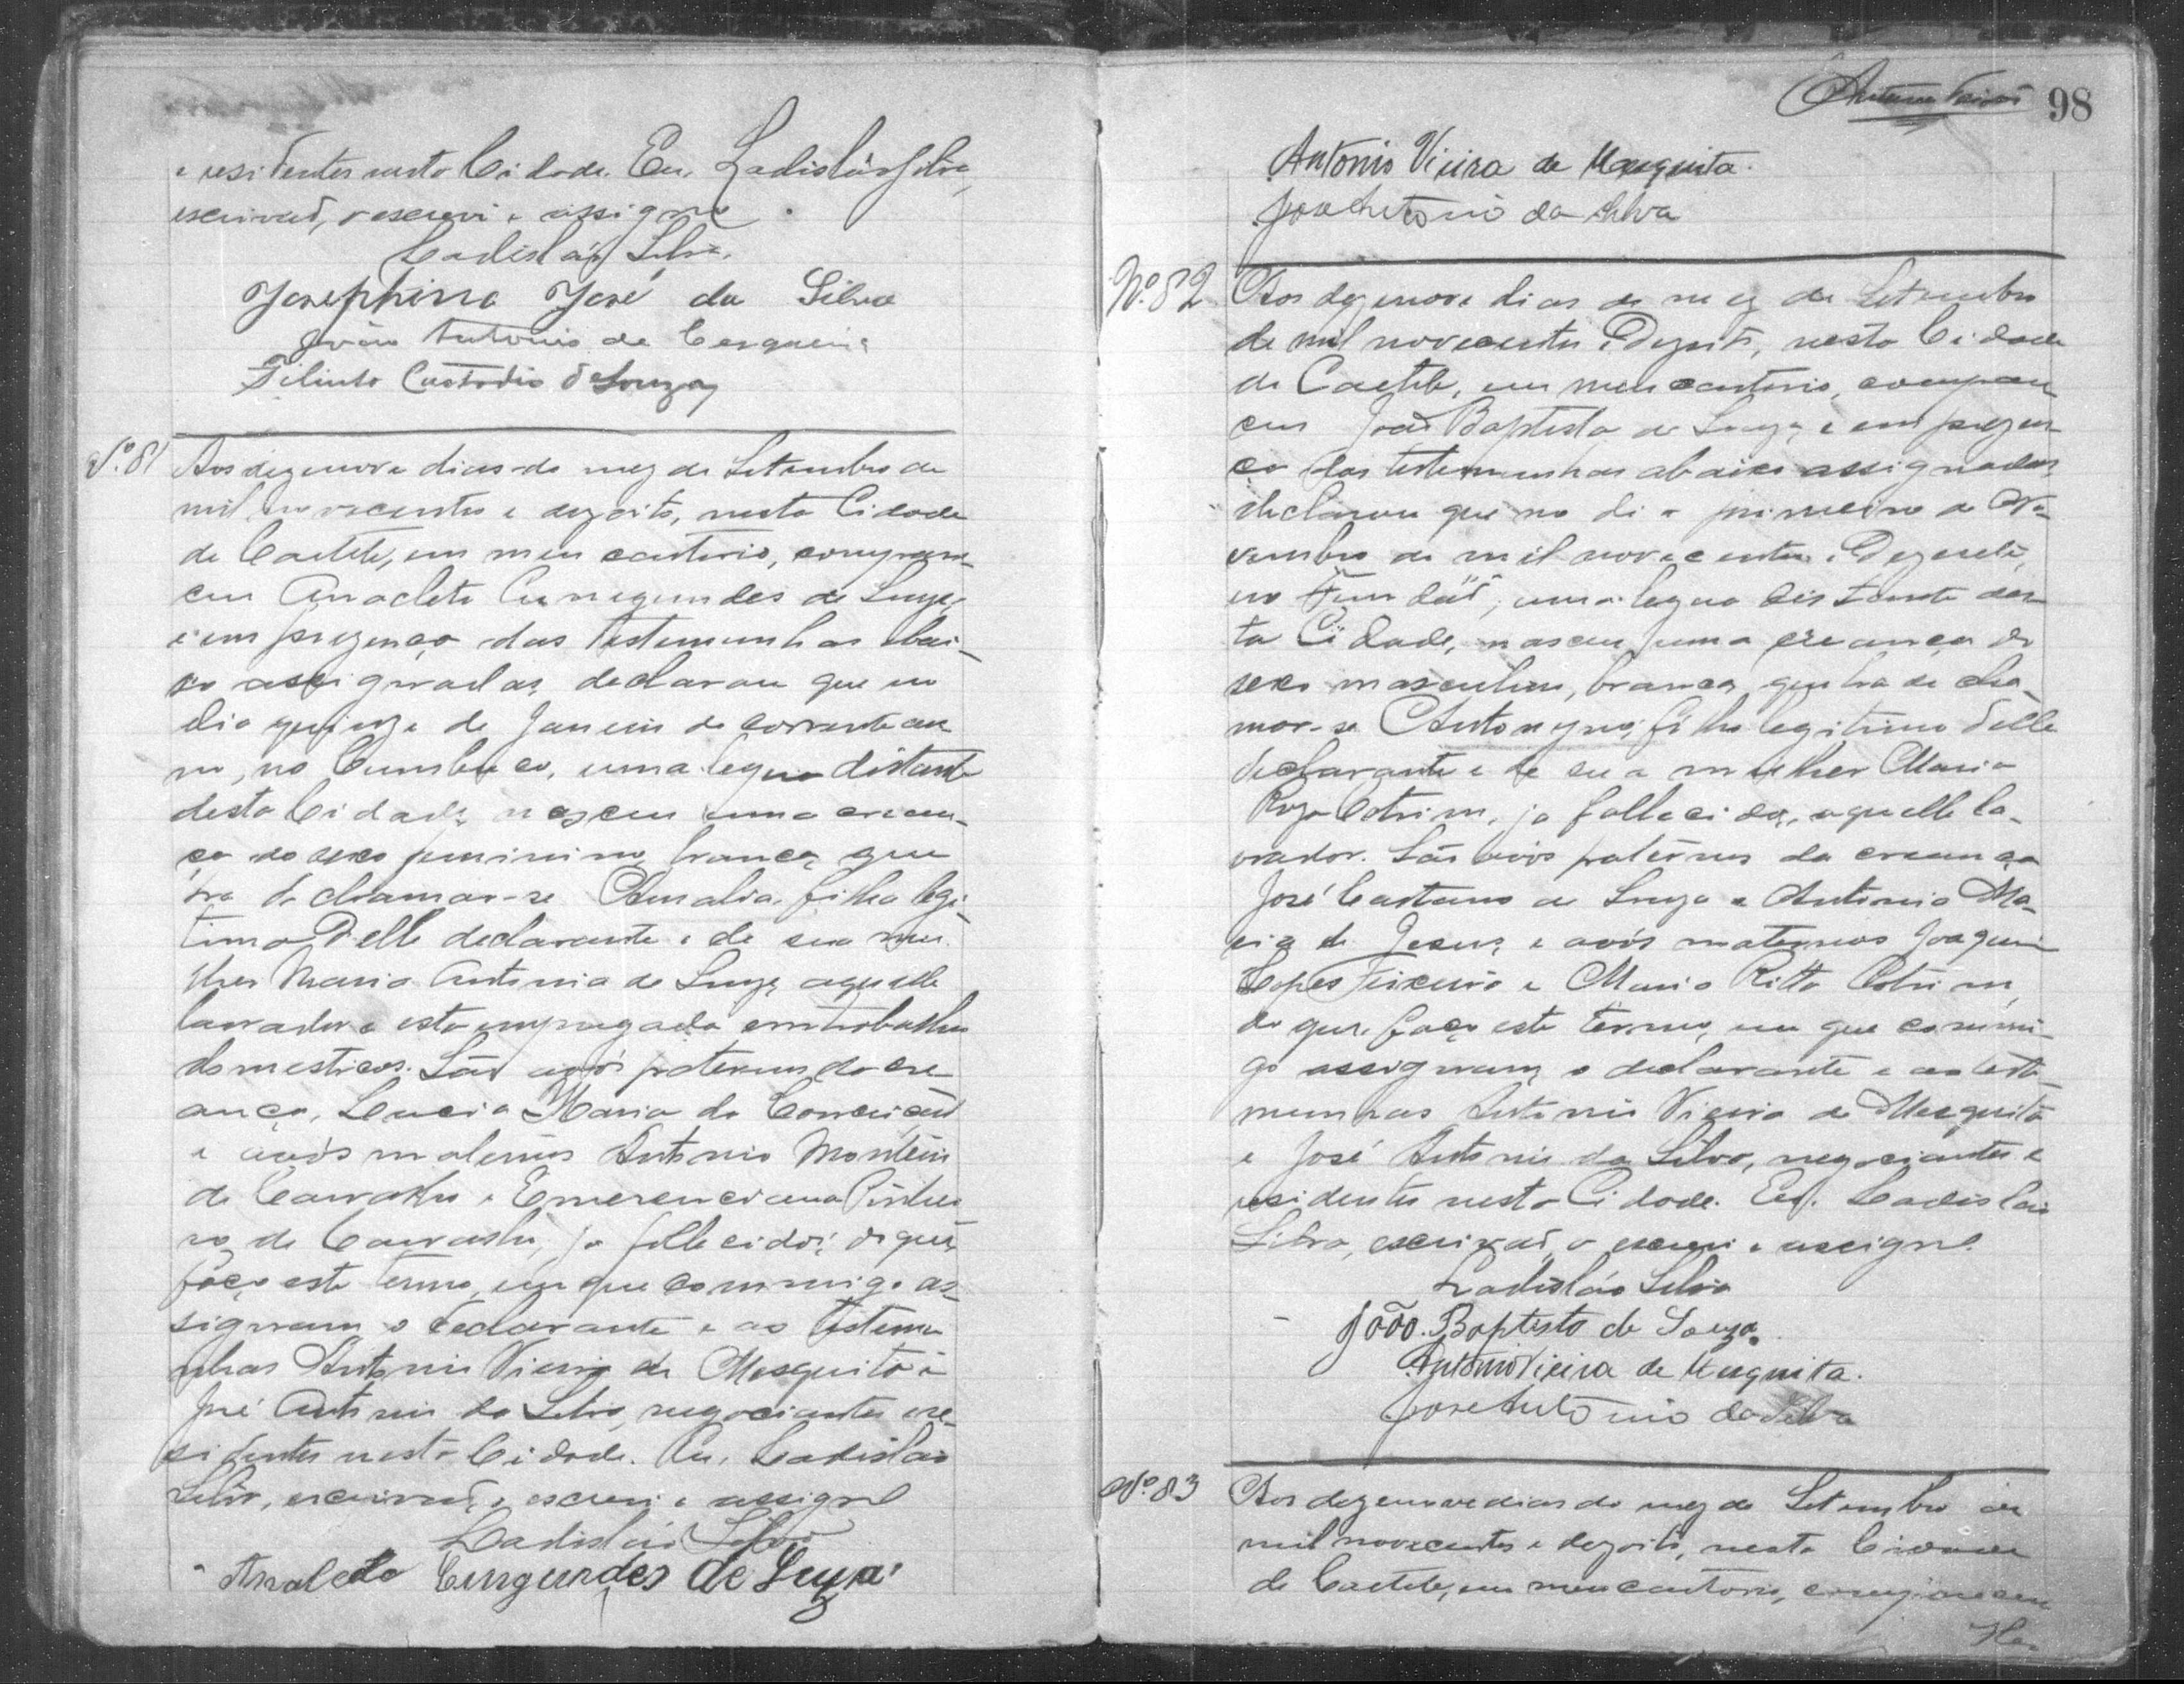 e residentes nesta Cidade. Eu, Ladisláo Silva,
escrivaõ, o escrevi e assigno
Ladisláo Silva.
Josephino José da Silva
João Antonio de Cerqueira
Filinto Custodio de Souza
Nº. 81
Aos dezenove dias do mez de Setembro de
mil novecentos e dezoito, nesta Cidade
de Caetité, em meu cartorio, compare-
ceu Anacleto Cunegundes de Souza,
e em prezença das testemunhas abai-
xo assignadas, declarou que no
dia quinze de Janeiro do corrente an
no, no Cumbuco, uma legua distante
desta Cidade, nasceu uma crean-
ça do sexo feminino, branca, que
ha de chamar-se Amalia, filha legi-
tima delle declarante e de sua mu-
lher Maria Antonia de Souza, aquelle
lavrador e esta empregada em trabalhos
domesticos. São avós paternos da cre-
ança, Lucia Maria da Conceição
e avós maternos Antonio Monteiro
de Carvalho e Emerenciana Pinhei
ro de Carvalho, ja fallecidos; do que,
faço este termo, em que commigo as-
signam o declarante e as testemu
nhas Antonio Vieira de Mesquita e
José Antonio da Silva, negociantes e re-
sidentes nesta Cidade. Eu, Ladislao
Silva, escrivaõ, o escrevi e assigno
Ladisláo Silva
Analeto Cungundes de Suza
98
Antonio Vieira de Mesquita.
José Antonio da Silva
Nº. 82
Aos dezenove dias do mez de Setembro
de mil novecentos e dezoito, nesta Cidade
de Caetité, em meu cartorio, compare
ceu João Baptista de Souza e em prezen-
ça das testemunhas abaixo assignadas,
declarou que no dia primeiro de No-
vembro de mil novecentos e dezesete,
no Fundão, uma legua distante des-
ta Cidade, nasceu uma creança do
sexo masculino, branca, que ha de cha-
mar-se filho legitimo delle
declarante e de sua mulher Maria
Roza Cotrim, ja fallecida, aquelle la-
vrador. São avós paternos da creança
José Caetano de Souza e Antonia Ma-
ria de Jesus, e avós maternos Joaquim
Lopes Teixeira e Maria Ritta Cotrim,
do que, faço este termo, em que commi-
go assignam o declarante e as teste-
munhas Antonio Vieira de Mesquita
e José Antonio da Silva, negociantes e
residentes nesta Cidade. Eu, Ladislao
Silva, escrivaõ, o escrevi e assigno.
Ladisláo Silva
João Baptista de Souza
Antonio Vieira de Mesquita.
José Antonio da Silva
Nº. 83
Aos dezenove dias do mez de Setembro de
mil novecentos e dezoito, nesta Cidade
de Caetité, em meu cartorio, compareceu